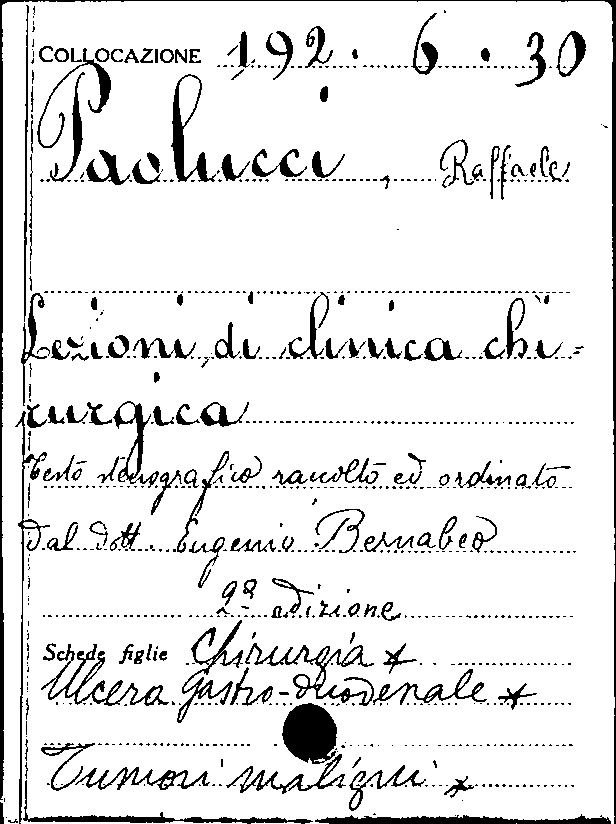 COLLOCAZIONE 192. 6. 30
Paolucci, Raffaele
Lezioni di clinica chi-
rurgica
Testo stenografico raccolto ed ordinato
dal dott. Eugenio Bernabeo
2ª edizione
Schede figlie Chirurgia *
Ulcera gastro-duodenale *
Tumori maligni *